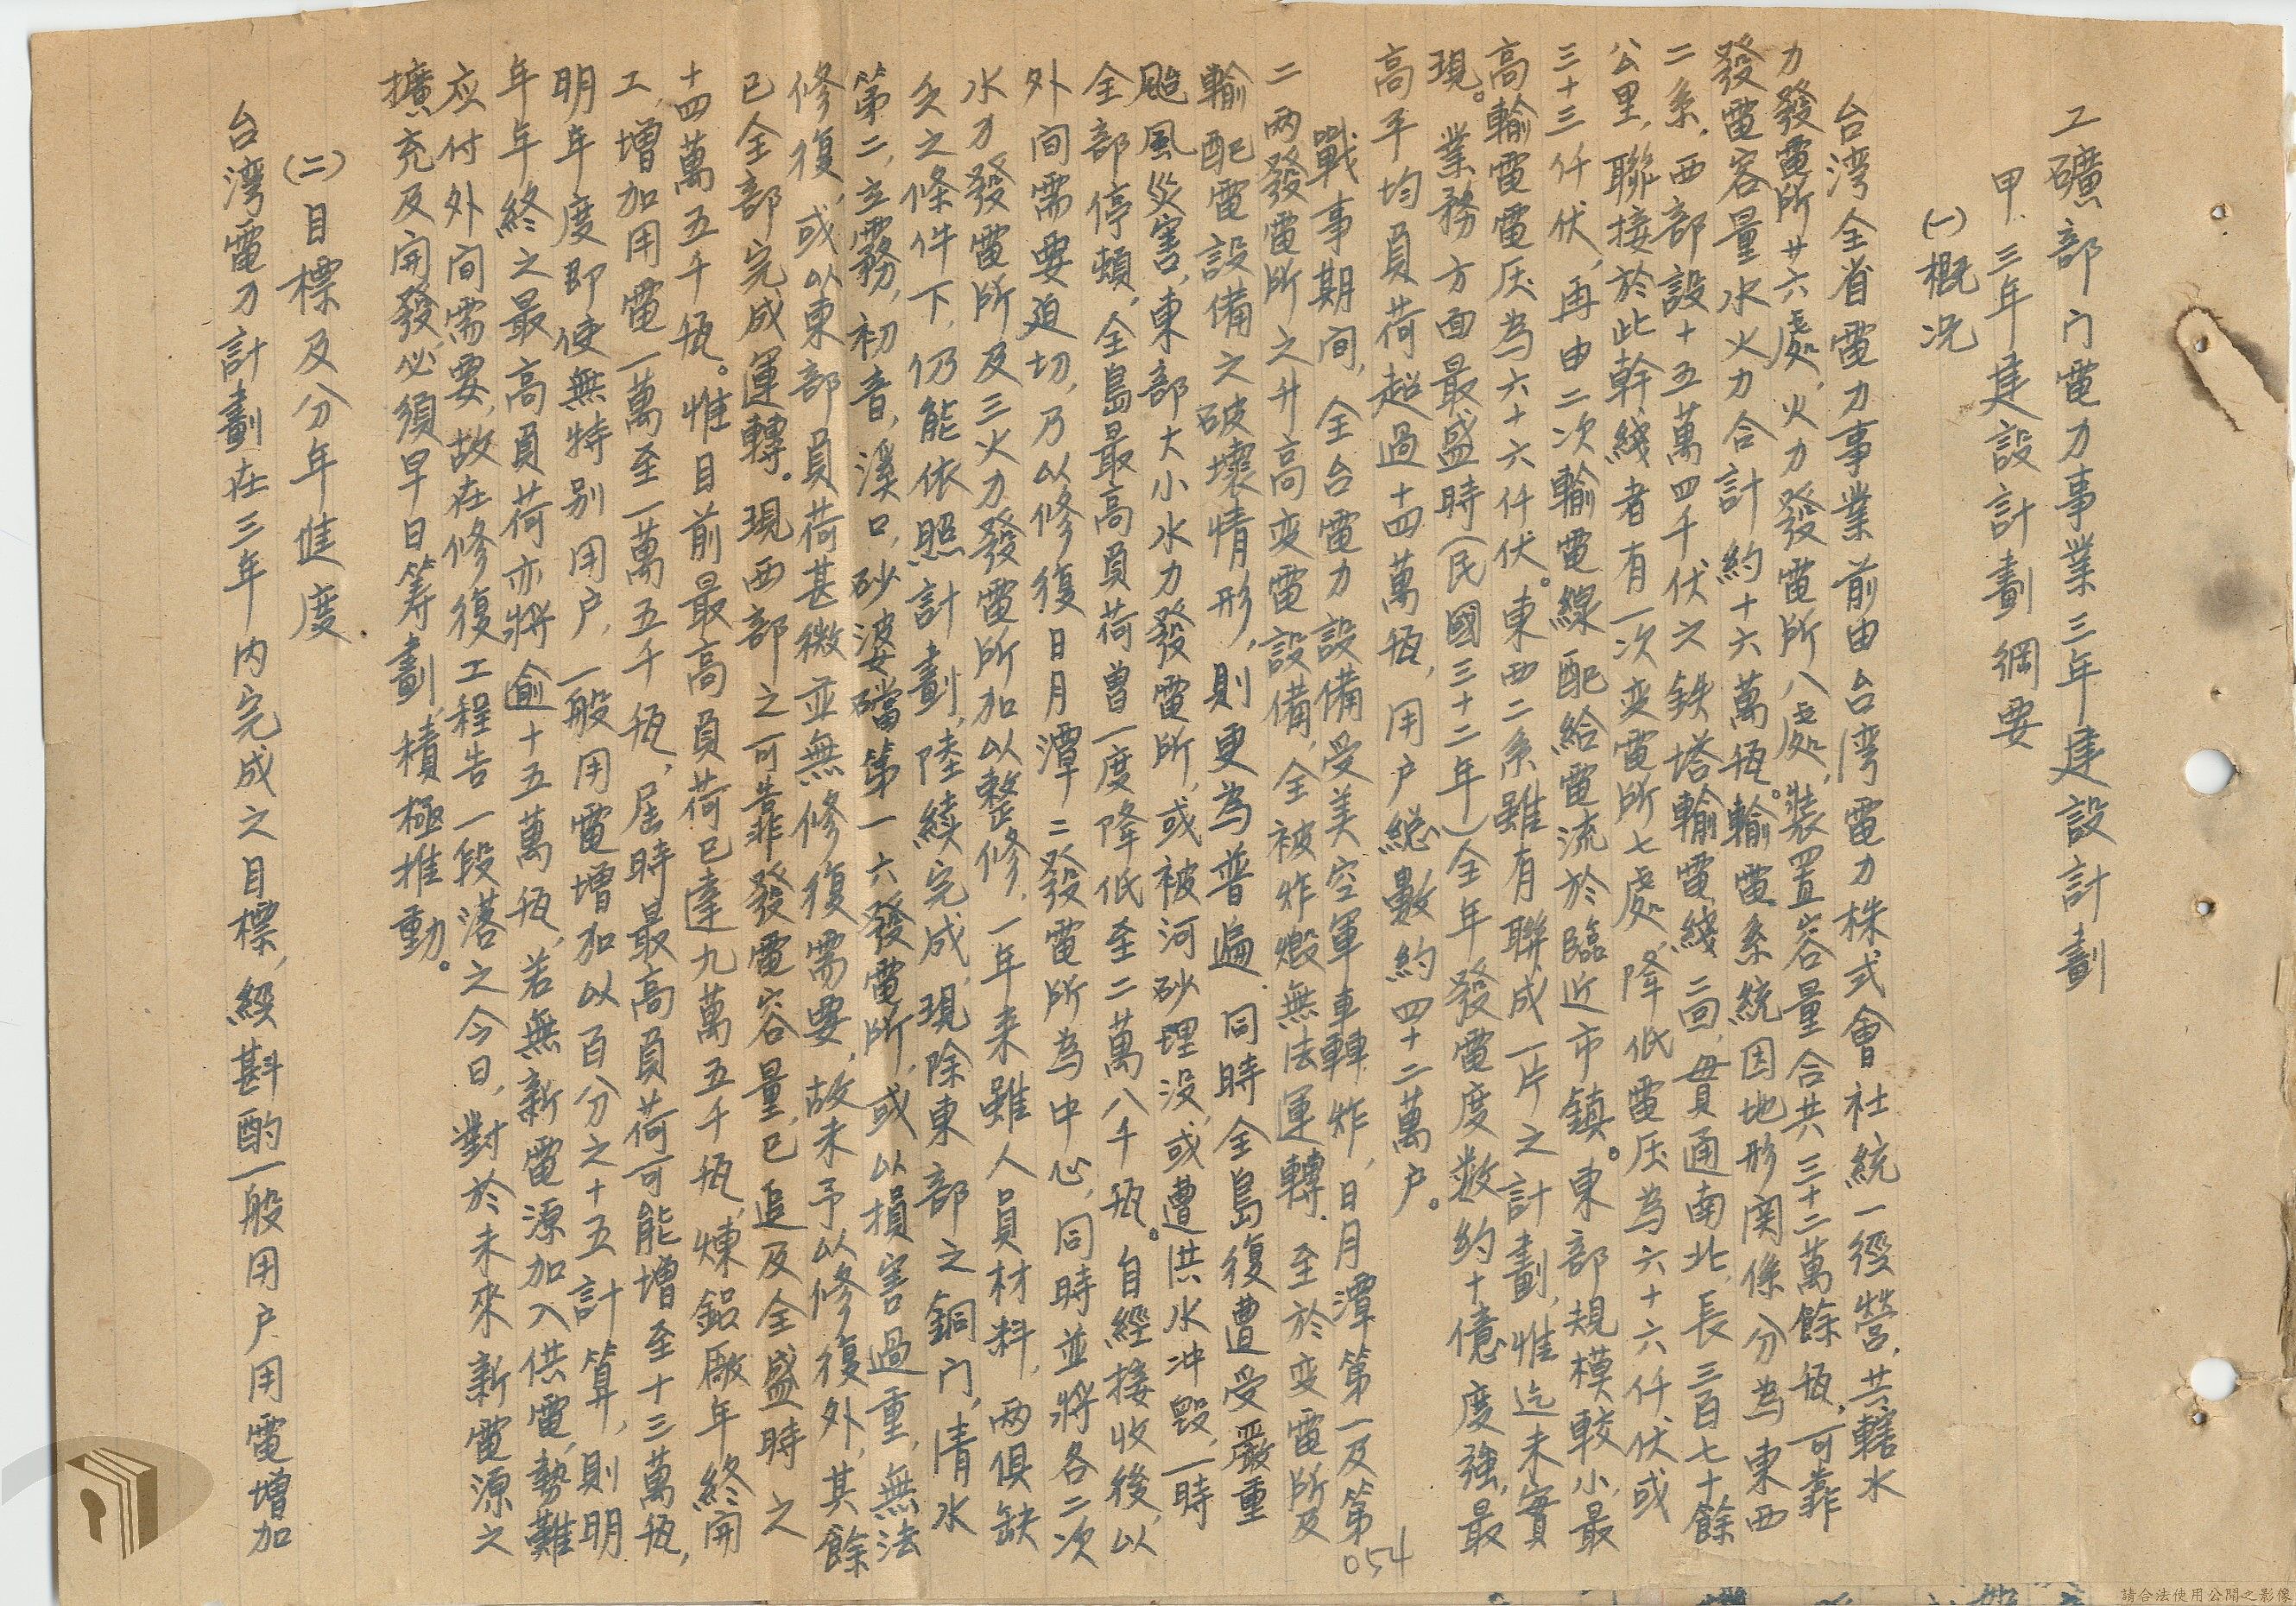 工礦部门電力事業三年建設計劃
甲.三年建設計劃綱要
(一)概况
台湾全省電力事業前由台湾電力株式會社統一徑營,共轄水
力發電所廿六處,火力發電所八處,裝置容量合共三十二萬餘瓩,可靠
發電容量水火力合計約十六萬瓩。輸電系統因地形関係分為東西
二系,西部設十五萬四千伏之鉄塔輸電綫二回,貫通南北,長三百七十餘
公里,聯接於此幹綫者有一次变電所七處,降低電压為六十六仟伏或
三十三仟伏,再由二次輸電線配給電流於臨近市鎮。東部規模較小,最
高輸電電压為六十六仟伏。東西二系雖有聯成一片之計劃,惟迄未實
現。業務方面最盛時(民國三十二年)全年發電度数約十億度強,最
高平均負荷超過十四萬瓩,用户総數約四十二萬户。
戰事期间,全台電力設備受美空軍車轉炸,日月潭第一及第
二兩發電所之升高变電設備,全被炸燬無法運轉.至於变電所及
輸配電設備之破壞情形,則更為普遍.同時全島復遭受嚴重
颱風災害,東部大小水力發電所,或被河砂埋没,或遭洪水冲毁,一時
全部停頓,全島最高負荷曾一度降低至二萬八千瓩。自經接收後,以
外间需要迫切,乃以修復日月潭二發電所為中心,同時並將各二次
水力發電所及三火力發電所加以整修.一年来雖人員材料,两俱缺
乏之條件下,仍能依照計劃,陸續完成,現除東部之銅门,清水
第二,立霧,初音,溪口,砂婆礑第一六發電所,或以損害過重,無法
修復,或以東部負荷甚微並無修復需要,故未予以修復外,其餘
已全部完成運轉.現西部之可靠發電容量,已追及全盛時之
十四萬五千瓩。惟目前最高負荷已達九萬五千瓩,煉鋁廠年終開
工,增加用電一萬至一萬五千瓩,屆時最高負荷可能增至十三萬瓩,
明年度即使無特别用户,一般用電增加以百分之十五計算,則明
年年終之最高負荷亦將逾十五萬瓩,若無新電源加入供電,勢難
应付外间需要,故在修復工程告一段落之今日,對於未來新電源之
擴充及開發,必須早日筹劃,積極推動。
(二)目標及分年進度
台湾電力計劃在三年内完成之目標,經斟酌一般用户用電增加
054
請合法使用公開之影像